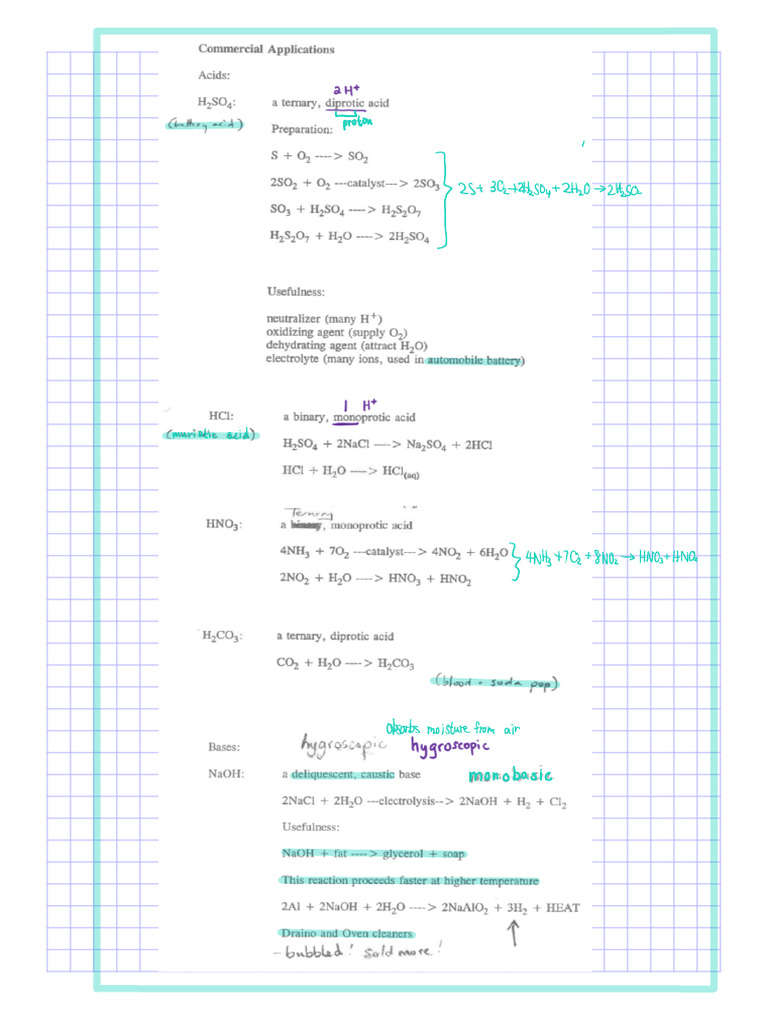 Commercial Applications
Acids:
2H⁺
H₂SO₄: a ternary, diprotic acid
(battery acid) proton
Preparation:
S + O₂ ----> SO₂
2SO₂ + O₂ ---catalyst---> 2SO₃
2S + 3O₂ + 2H₂SO₄ + 2H₂O → 2H₂SO₄
SO₃ + H₂SO₄ ----> H₂S₂O₇
H₂S₂O₇ + H₂O ----> 2H₂SO₄
Usefulness:
neutralizer (many H⁺)
oxidizing agent (supply O₂)
dehydrating agent (attract H₂O)
electrolyte (many ions, used in automobile battery)
1 H⁺
HCl: a binary, monoprotic acid
(muriatic acid)
H₂SO₄ + 2NaCl ----> Na₂SO₄ + 2HCl
HCl + H₂O ----> HCl(aq)
Ternary
HNO₃: a binary, monoprotic acid
4NH₃ + 7O₂ ---catalyst---> 4NO₂ + 6H₂O
4NH₃ + 7O₂ + 8NO₂ → HNO₃ + HNO₂
2NO₂ + H₂O ----> HNO₃ + HNO₂
H₂CO₃: a ternary, diprotic acid
CO₂ + H₂O ----> H₂CO₃
(blood + soda pop)
absorbs moisture from air
Bases: hygroscopic hygroscopic
NaOH: a deliquescent, caustic base monobasic
2NaCl + 2H₂O ---electrolysis--> 2NaOH + H₂ + Cl₂
Usefulness:
NaOH + fat ----> glycerol + soap
This reaction proceeds faster at higher temperature
2Al + 2NaOH + 2H₂O ----> 2NaAlO₂ + 3H₂ + HEAT
Draino and Oven cleaners
- bubbled! Sold more!